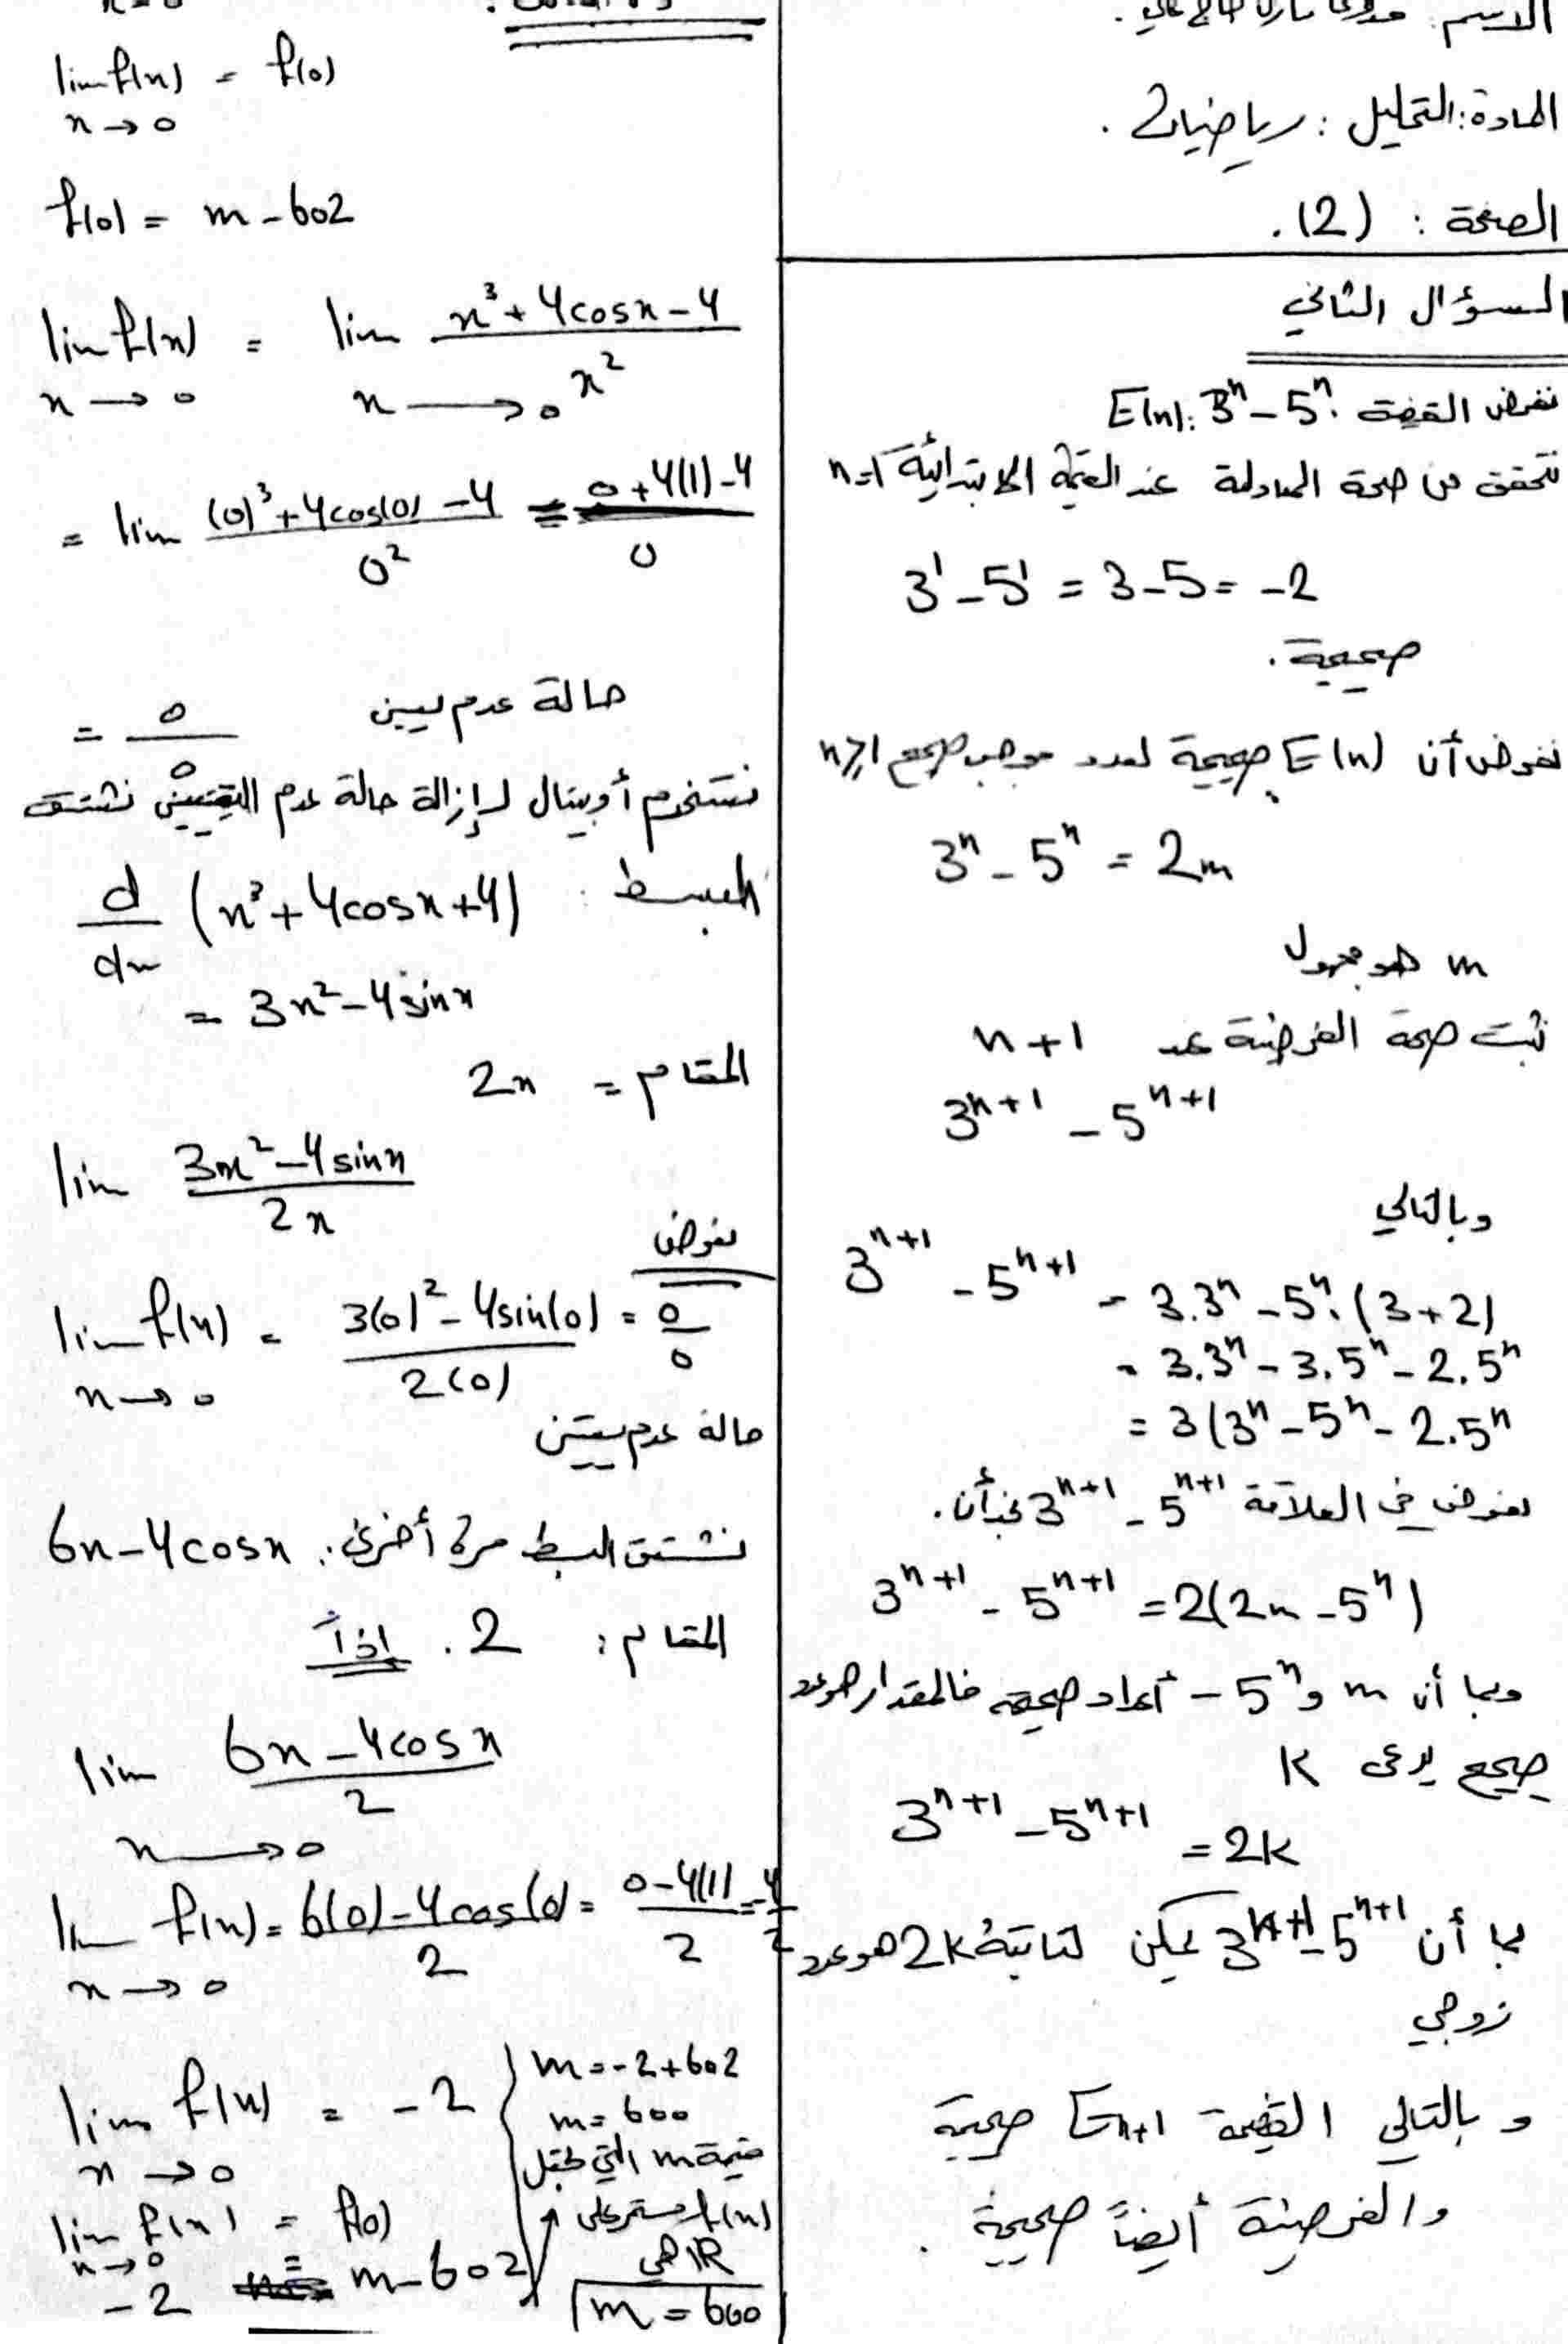 الاسم:
المادة: التحليل : رياضيات.
الصفحة : (2).
السؤال الثاني
نفرض القضية: E(n): 3ⁿ - 5ⁿ
نتحقق من صحة المعادلة عند القيمة الابتدائية n=1
3¹ - 5¹ = 3 - 5 = -2
صحيحة.
نفرض أن E(n) صحيحة لعدد موجب صحيح n≥1
3ⁿ - 5ⁿ = 2m
m هو مجهول
نثبت صحة الفرضية عند n+1
3ⁿ⁺¹ - 5ⁿ⁺¹
وبالتالي
3ⁿ⁺¹ - 5ⁿ⁺¹ = 3.3ⁿ - 5ⁿ.(3+2)
= 3.3ⁿ - 3.5ⁿ - 2.5ⁿ
= 3(3ⁿ - 5ⁿ - 2.5ⁿ
نعوض في العلاقة 3ⁿ⁺¹ - 5ⁿ⁺¹ نجد أن.
3ⁿ⁺¹ - 5ⁿ⁺¹ = 2(2m - 5ⁿ)
وبما أن m و 5ⁿ - أعداد صحيحة فالمقدار هو عدد
صحيح يدعى K
3ⁿ⁺¹ - 5ⁿ⁺¹ = 2K
بما أن 3ⁿ⁺¹ - 5ⁿ⁺¹ يمكن كتابته 2K هو عدد
زوجي
و بالتالي القضية Eₙ₊₁ صحيحة
والفرضية أيضاً صحيحة.
lim f(x) = f(0)
x → 0
f(0) = m - 602
lim f(x) = lim x³ + 4cosx - 4 / x²
x → 0 x → 0
= lim (0)³ + 4cos(0) - 4 / 0² = 0 + 4(1) - 4 / 0
= 0/0 حالة عدم تعيين
نستخدم أوبيتال لإزالة حالة عدم التعيين نشتق
البسط : d/dx (x³ + 4cosx + 4)
= 3x² - 4sinx
المقام = 2x
lim 3x² - 4sinx / 2x
نعوض
lim f(x) = 3(0)² - 4sin(0) / 2(0) = 0/0
x → 0
حالة عدم تعيين
نشتق البسط مرة أخرى: 6x - 4cosx
المقام : 2. إذاً
lim 6x - 4cosx / 2
x → 0
lim f(x) = 6(0) - 4cos(0) / 2 = 0 - 4(1) / 2 = -4/2
x → 0
lim f(x) = -2
x → 0
lim f(x) = f(0)
x → 0
-2 = m - 602
m = -2 + 602
m = 600
قيمة m التي تجعل
f(x) مستمر على
R هي
m = 600